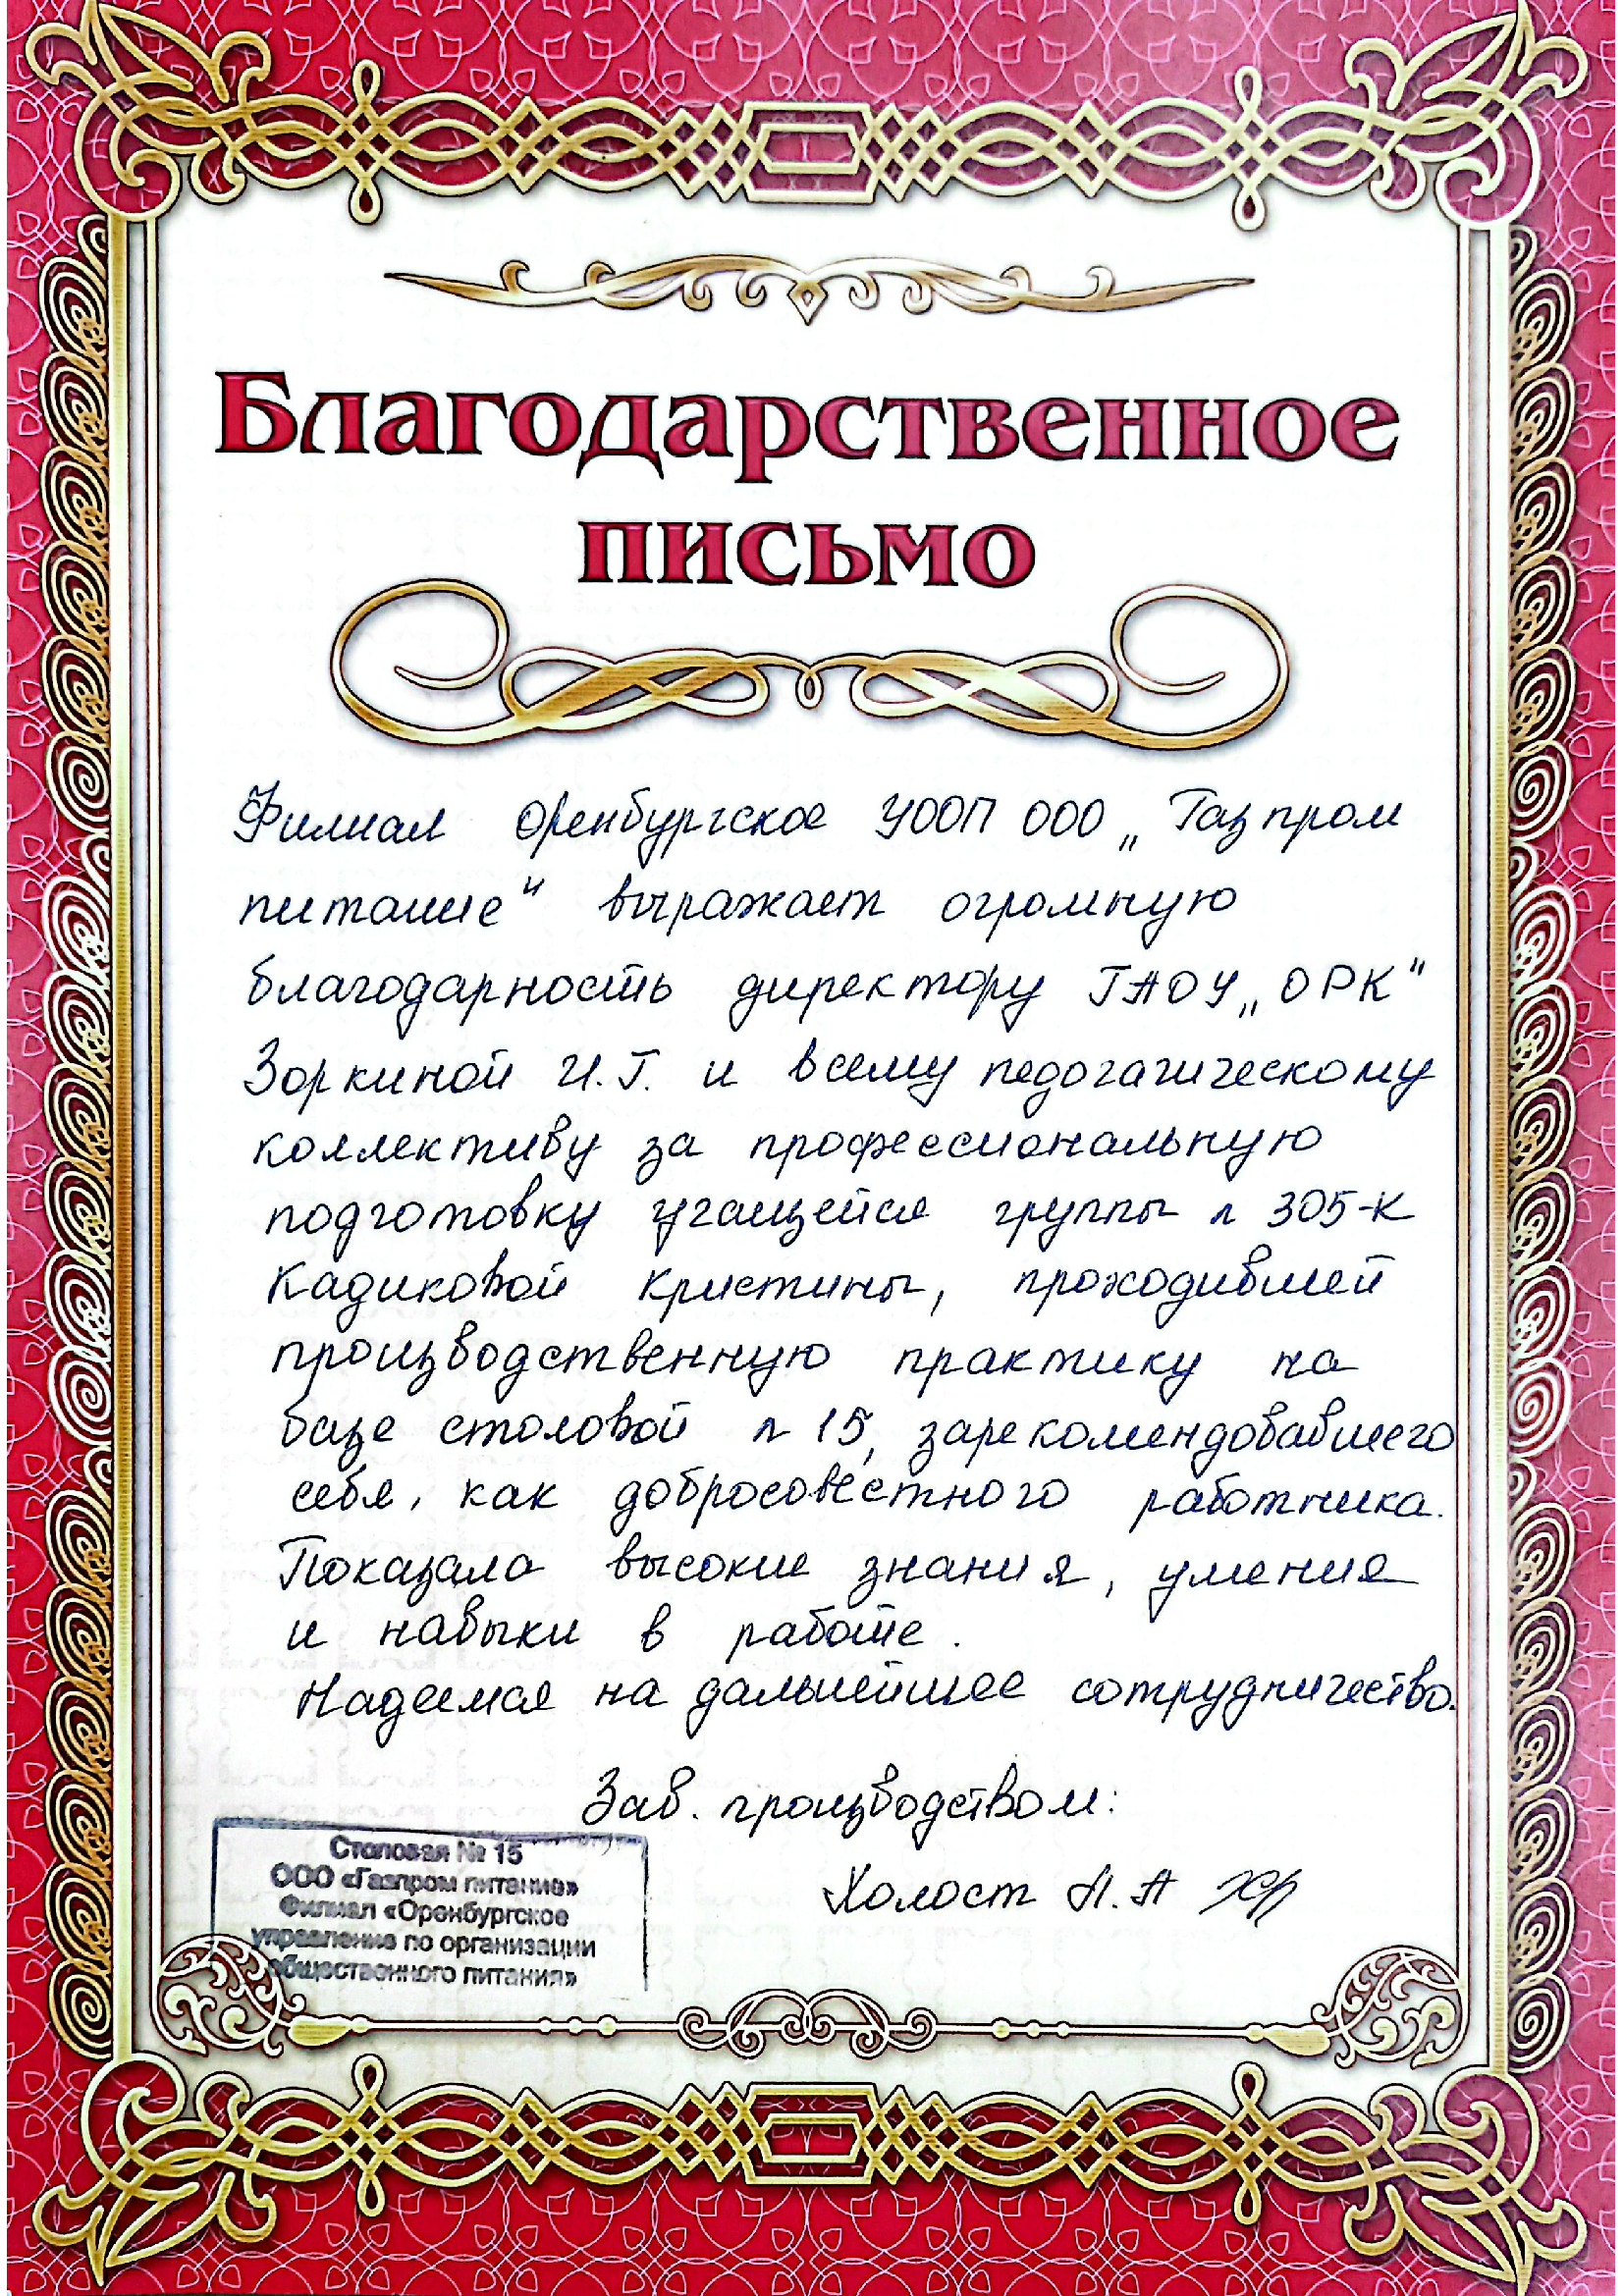 Благодарственное
письмо
Филиал Оренбургское УООП ООО „Газпром
питание“ выражает огромную
благодарность директору ГАОУ „ОРК“
Зоркиной И.Г. и всему педогагическому
коллективу за профессиональную
подготовку учащейся группы n 305-К
Кадиковой Кристины, проходившей
производственную практику на
базе столовой n 15, зарекомендовавшего
себя, как добросовестного работника.
Показала высокие знания, умения
и навыки в работе.
Надеемся на дальнейшее сотрудничество.
Зав. производством:
Холост Н.А
Столовая № 15
ООО «Газпром питание»
Филиал «Оренбургское
управление по организации
общественного питания»